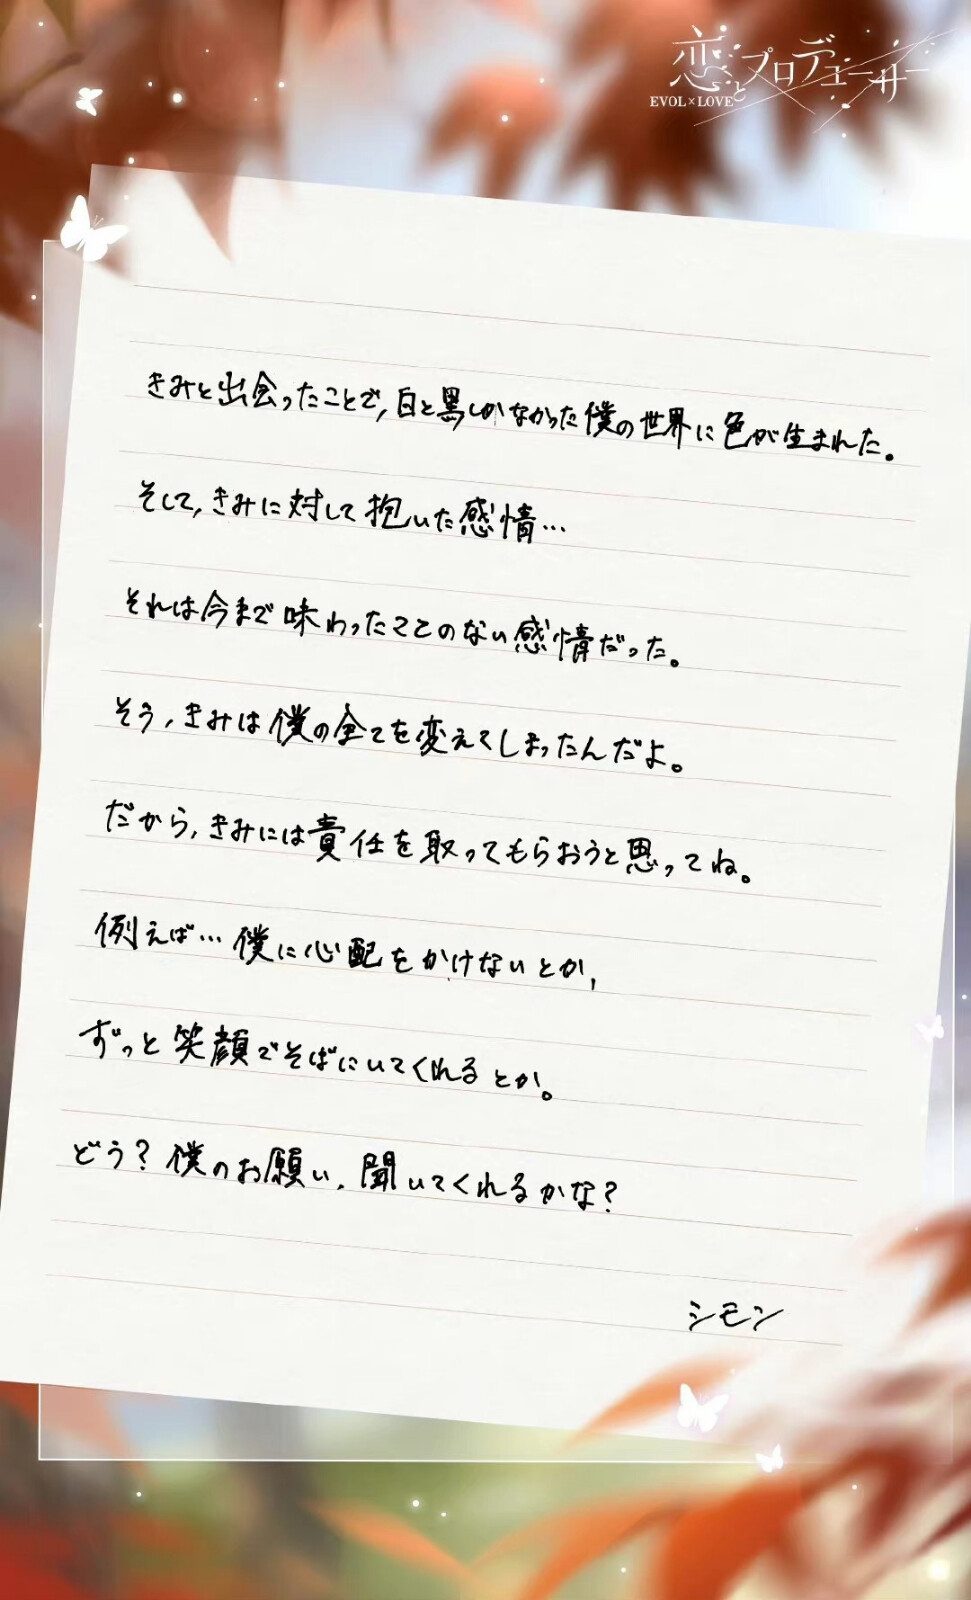 恋とプロデューサー
EVOL×LOVE
きみと出会ったことで,白と黒しかなかった僕の世界に色が生まれた。
そして,きみに対して抱いた感情…
それは今まで味わったことのない感情だった。
そう,きみは僕の全てを変えてしまったんだよ。
だから,きみには責任を取ってもらおうと思ってね。
例えば…僕に心配をかけないとか,
ずっと笑顔でそばにいてくれるとか。
どう?僕のお願い,聞いてくれるかな?
シモン